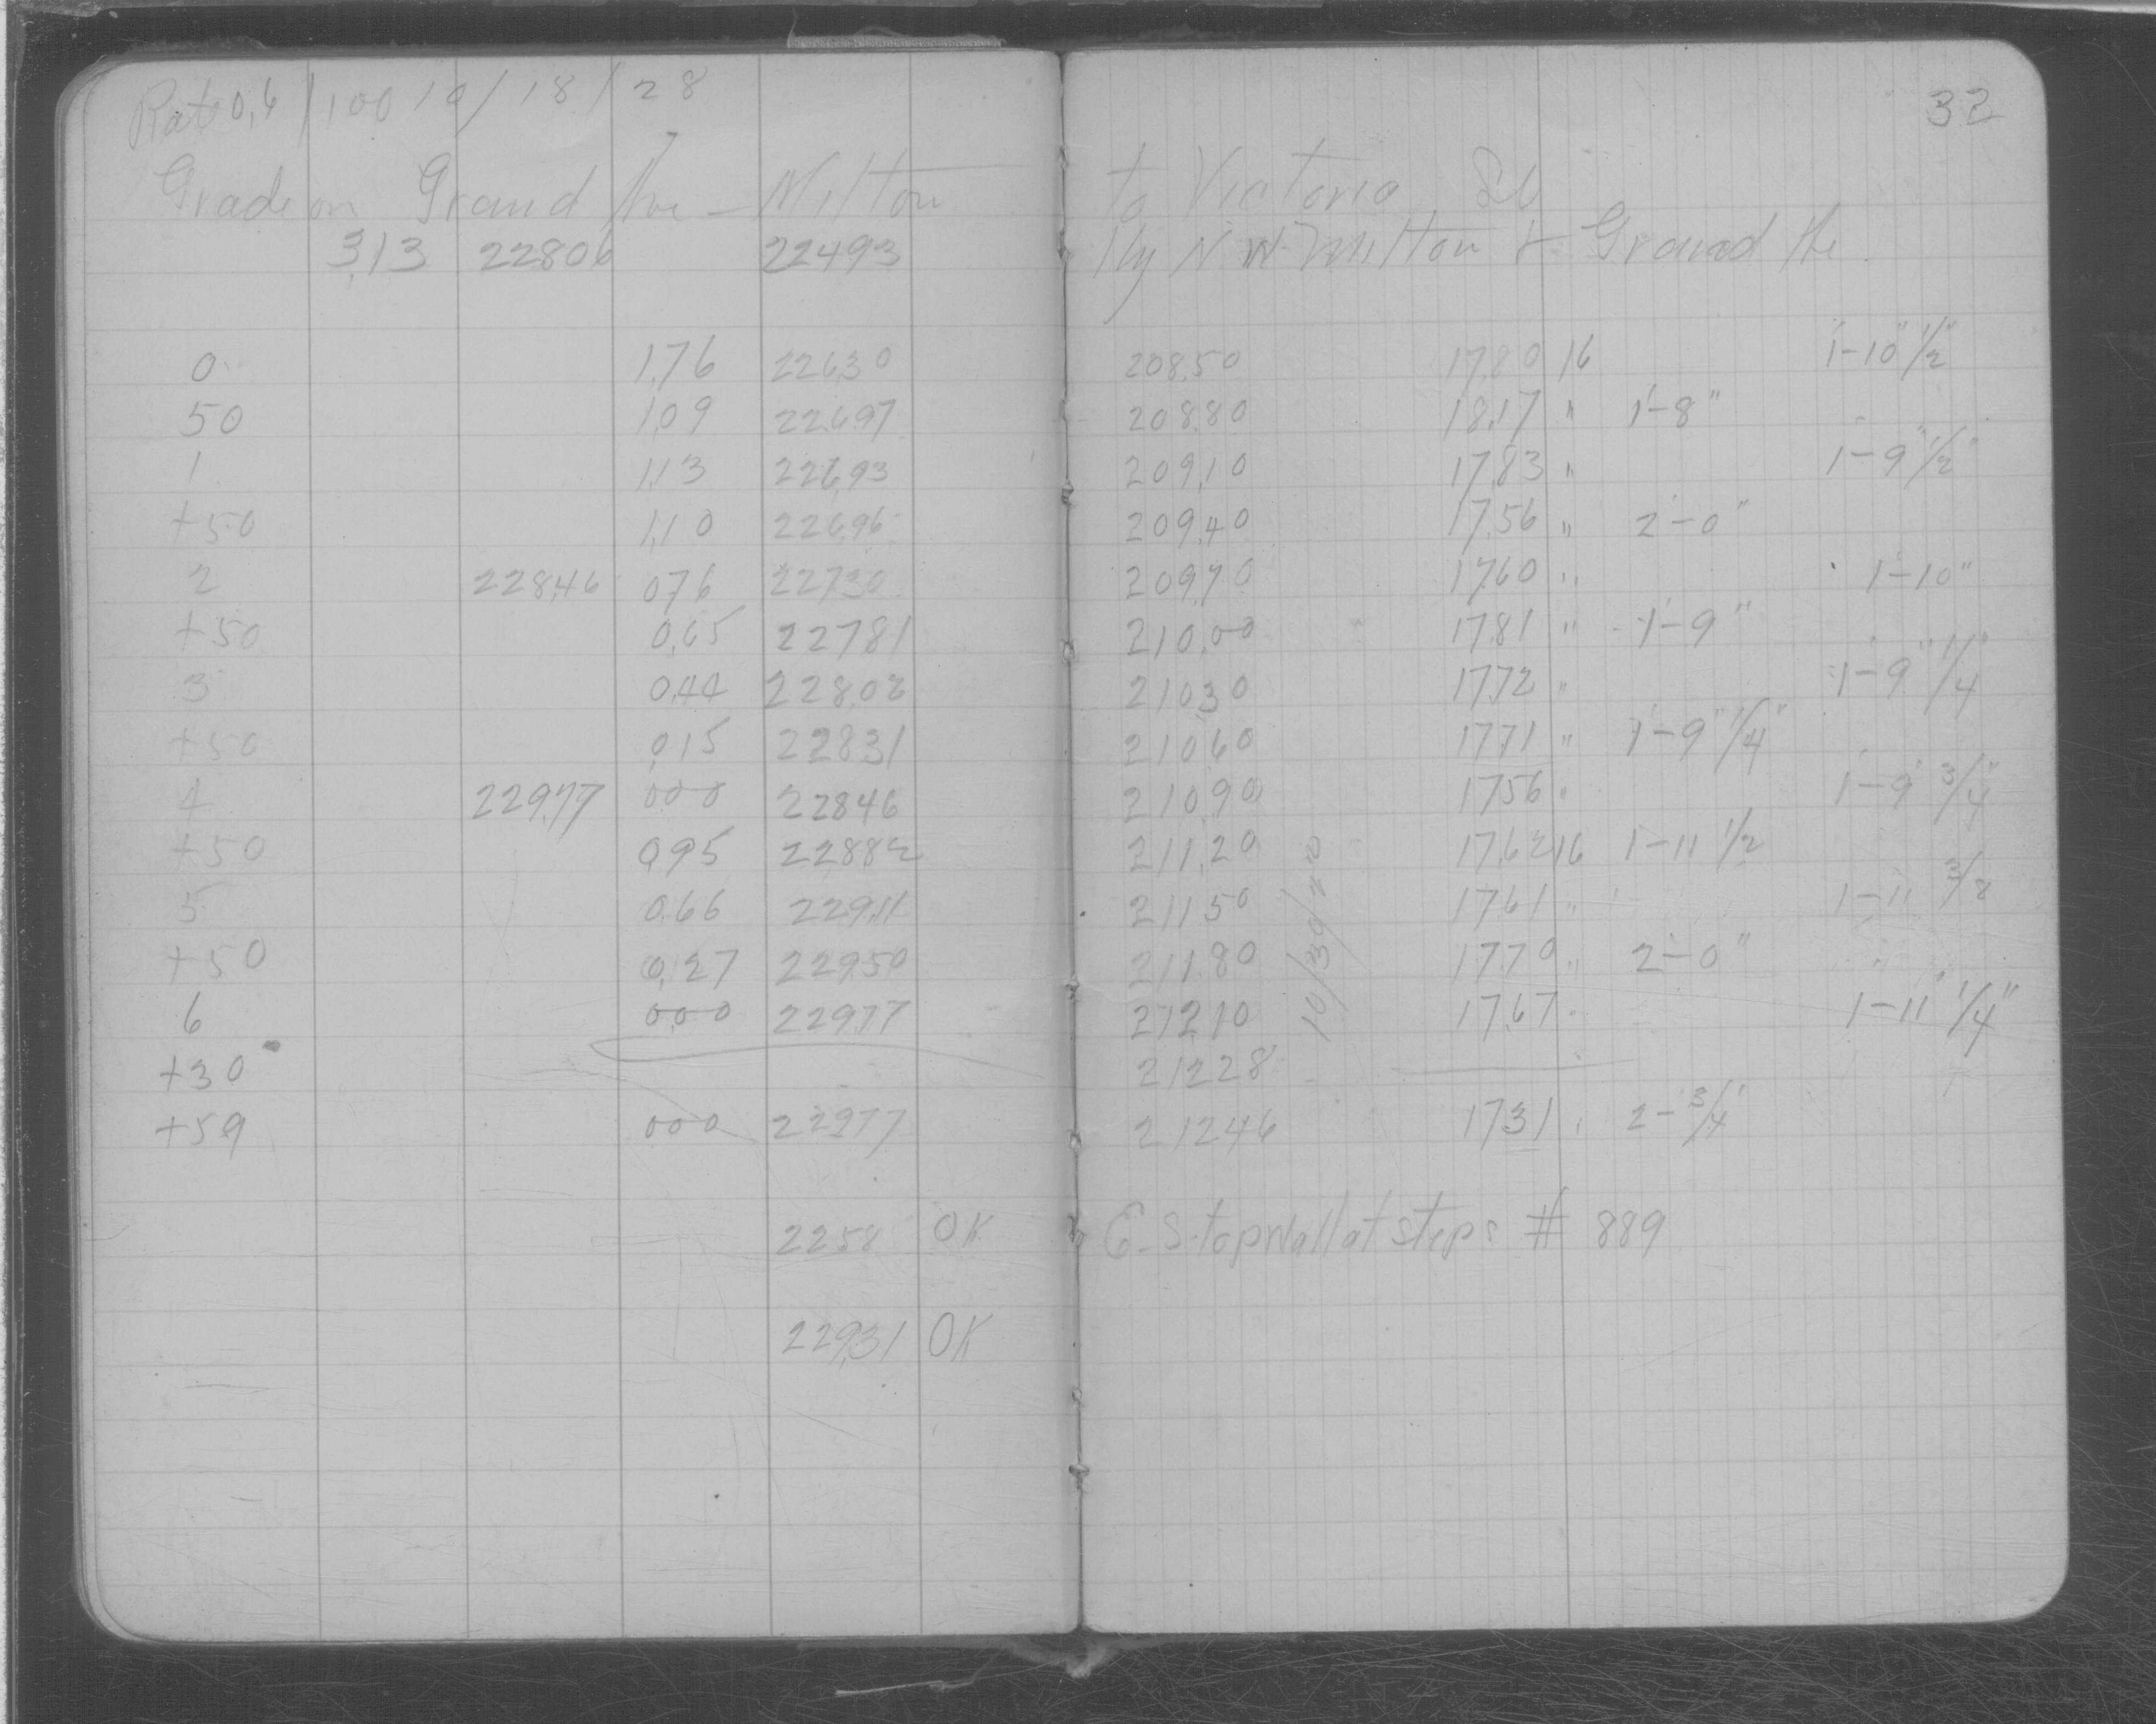 32
Rate 0.6 / 100 10/18/28
Grade on Grand Ave - Milton to Victoria St
3.13 228.06 224.93 Hy N.W. Milton + Grand Ave
0 1.76 226.30 208.50 17.80 16 1'-10" 1/2"
50 1.09 226.97 208.80 18.17 " 1'-8"
1 1.13 226.93 209.10 17.83 " 1'-9" 1/2"
+50 1.10 226.96 209.40 17.56 " 2'-0"
2 228.46 0.76 227.30 209.70 17.60 " 1'-10"
+50 0.65 227.81 210.00 17.81 " 1'-9"
3 0.44 228.02 210.30 17.72 " 1'-9" 1/4"
+50 0.15 228.31 210.60 17.71 " 1'-9" 1/4"
4 229.77 0.00 228.46 210.90 17.56 " 1'-9" 3/4"
+50 0.95 228.82 211.20 17.62 16 1-11 1/2
5 0.66 229.11 211.50 17.61 " 1-11
+50 0.27 229.50 211.80 17.70 " 2'-0"
6 0.00 229.77 212.10 17.67 " 1'-11" 1/4"
+30 212.28
+59 0.00 229.77 212.46 17.31 " 2'-3/4"
10/30/
2258 OK E.S. top Wall at steps # 889
229.31 OK